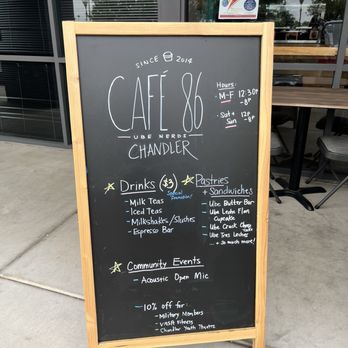 SINCE 2014
CAFÉ 86
UBE NERDS
CHANDLER
Hours:
M-F 12:30p
-8p
Sat + 12p
Sun -8p
Drinks ($3)
Special Promotion!
- Milk Teas
- Iced Teas
- Milkshakes/Slushes
- Espresso Bar
Pastries
+ Sandwiches
- Ube Butter Bar
- Ube Leche Flan
Cupcake
- Ube Crack
- Ube Tres Leches
... + so much more!
Community Events
- Acoustic Open Mic
- 10% off for:
- Military Members
- Fitness
- Chandler Youth Theatre